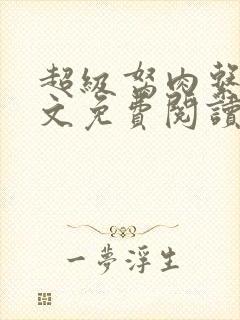 超級驽肉系
文免費閱讀
一夢浮生